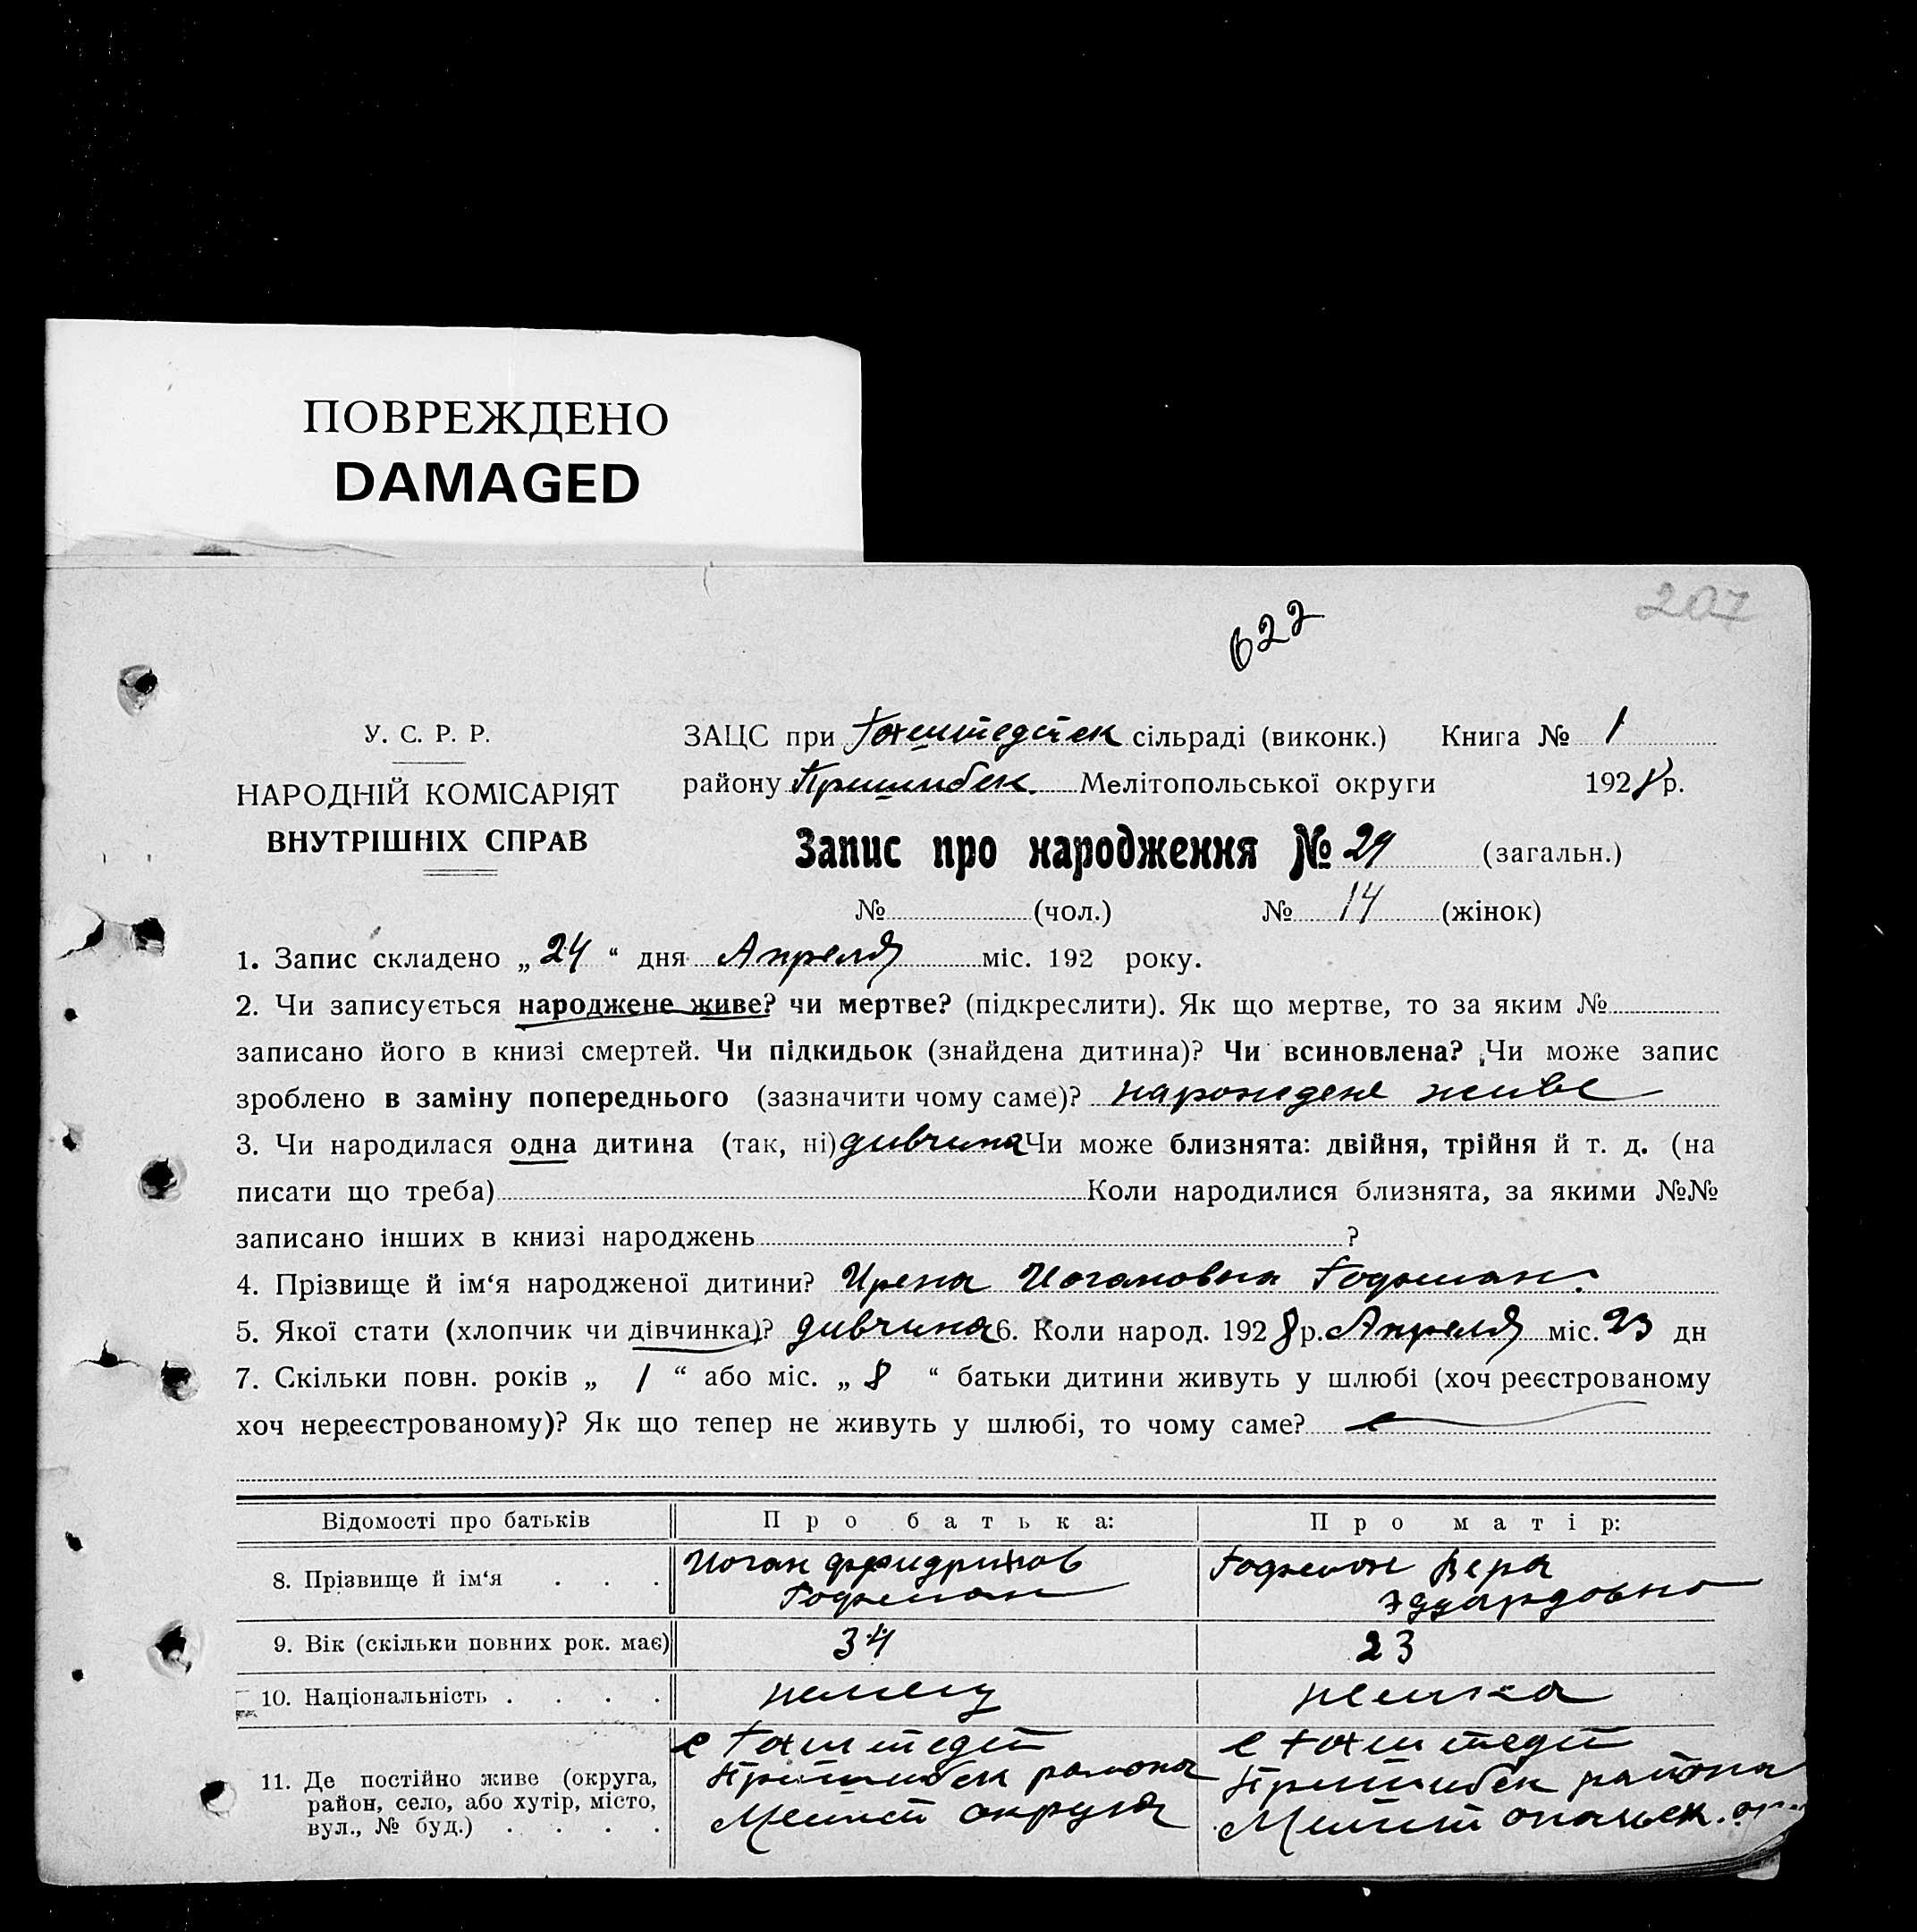 ПОВРЕЖДЕНО
DAMAGED
207
622
У. С. Р. Р.
НАРОДНІЙ КОМІСАРІЯТ
ВНУТРІШНІХ СПРАВ
ЗАЦС при Гохштедтск сільраді (виконк.) Книга № 1
району Пришибск. Мелітопольської округи 1928 р.
Запис про народження № 29 (загальн.)
№ (чол.) № 14 (жінок)
1. Запис складено „ 24 “ дня Апреля міс. 192 року.
2. Чи записується народжене живе? чи мертве? (підкреслити). Як що мертве, то за яким №
записано його в книзі смертей. Чи підкидьок (знайдена дитина)? Чи всиновлена? Чи може запис
зроблено в заміну попереднього (зазначити чому саме)? народжене живе
3. Чи народилася одна дитина (так, ні) дивчина Чи може близнята: двійня, трійня й т. д. (на
писати що треба) Коли народилися близнята, за якими №№
записано інших в книзі народжень ?
4. Прізвище й ім‘я народженої дитини? Ирена Иогановна Гофман.
5. Якої стати (хлопчик чи дівчинка)? дивчина 6. Коли народ. 1928 р. Апреля міс. 23 дн
7. Скільки повн. років „ 1 “ або міс. „ 8 “ батьки дитини живуть у шлюбі (хоч реєстрованому
хоч нереєстрованому)? Як що тепер не живуть у шлюбі, то чому саме?
Відомості про батьків Про батька: Про матір:
8. Прізвище й ім‘я . . . Иоган Фридрихов Гофман Гофман Вера Эдуардовна
9. Вік (скільки повних рок. має) 34 23
10. Національність . . . . немец немка
11. Де постійно живе (округа, район, село, або хутір, місто, вул., № буд.) . . . .
с Гохштедт
Пришибск района
Мелит округа
с Гохштедт
Пришибск района
Мелитопольск. ок